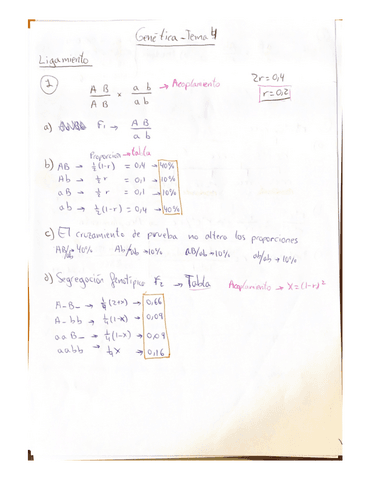 Genética - Tema 4
Ligamiento
1 A B / A B × a b / a b → Acoplamiento 2r = 0,4
r = 0,2
a) F₁ → A B / a b
Proporción → tabla
b) AB → ½(1-r) = 0,4 → 40%
Ab → ½ r = 0,1 → 10%
aB → ½ r = 0,1 → 10%
ab → ½ (1-r) = 0,4 → 40%
c) El cruzamiento de prueba no altera las proporciones
AB/ab → 40% Ab/ab → 10% aB/ab → 10% ab/ab → 10%
d) Segregación fenotípica F₂ → Tabla Acoplamiento → X = (1-r)²
A_B_ → ¼ (2+x) → 0,66
A_bb → ¼ (1-x) → 0,09
aaB_ → ¼ (1-x) → 0,09
aabb → ¼ X → 0,16